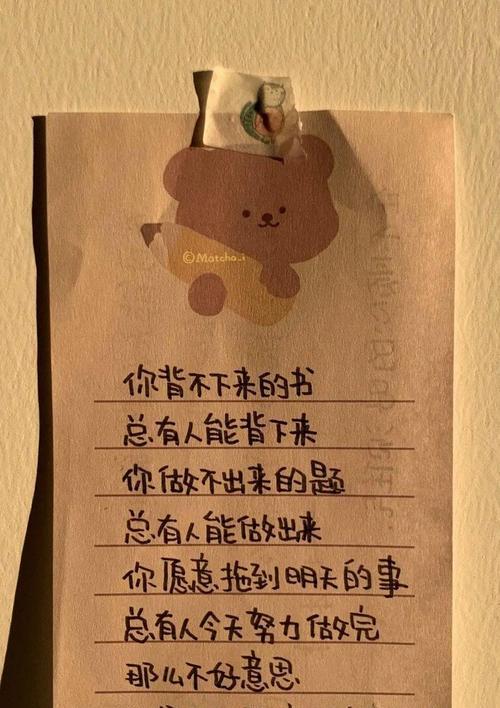 ©Matcha_i
你背不下来的书
总有人能背下来
你做不出来的题
总有人能做出来
你愿意拖到明天的事
总有人今天努力做完
那么不好意思